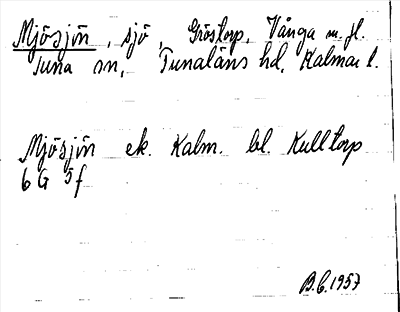 Mjösjön, sjö, Gröstorp, Vånga m. fl.
Tuna sn, Tunaläns hd, Kalmar l.
Mjösjön ek. Kalm. bl. Kulltorp
6 G 5f
B.C. 1957